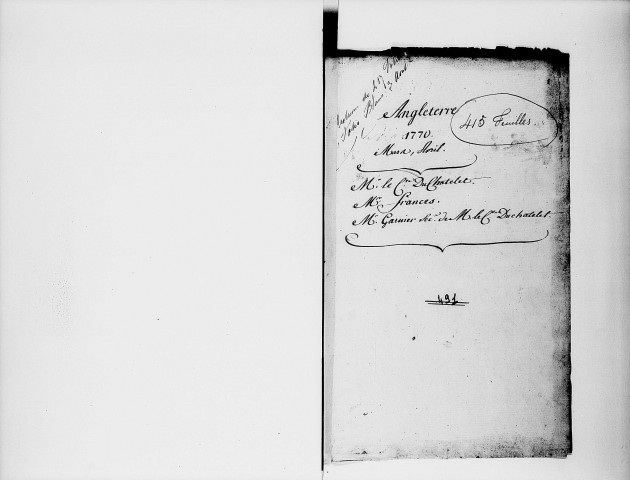 de
Angleterre
415 Feuilles
1770
Mars, Avril.
Mr. le Cte. DuChatelet.
Mr. frances.
Mr. Garnier Sec. de M. le Cte. Duchatelet.
491